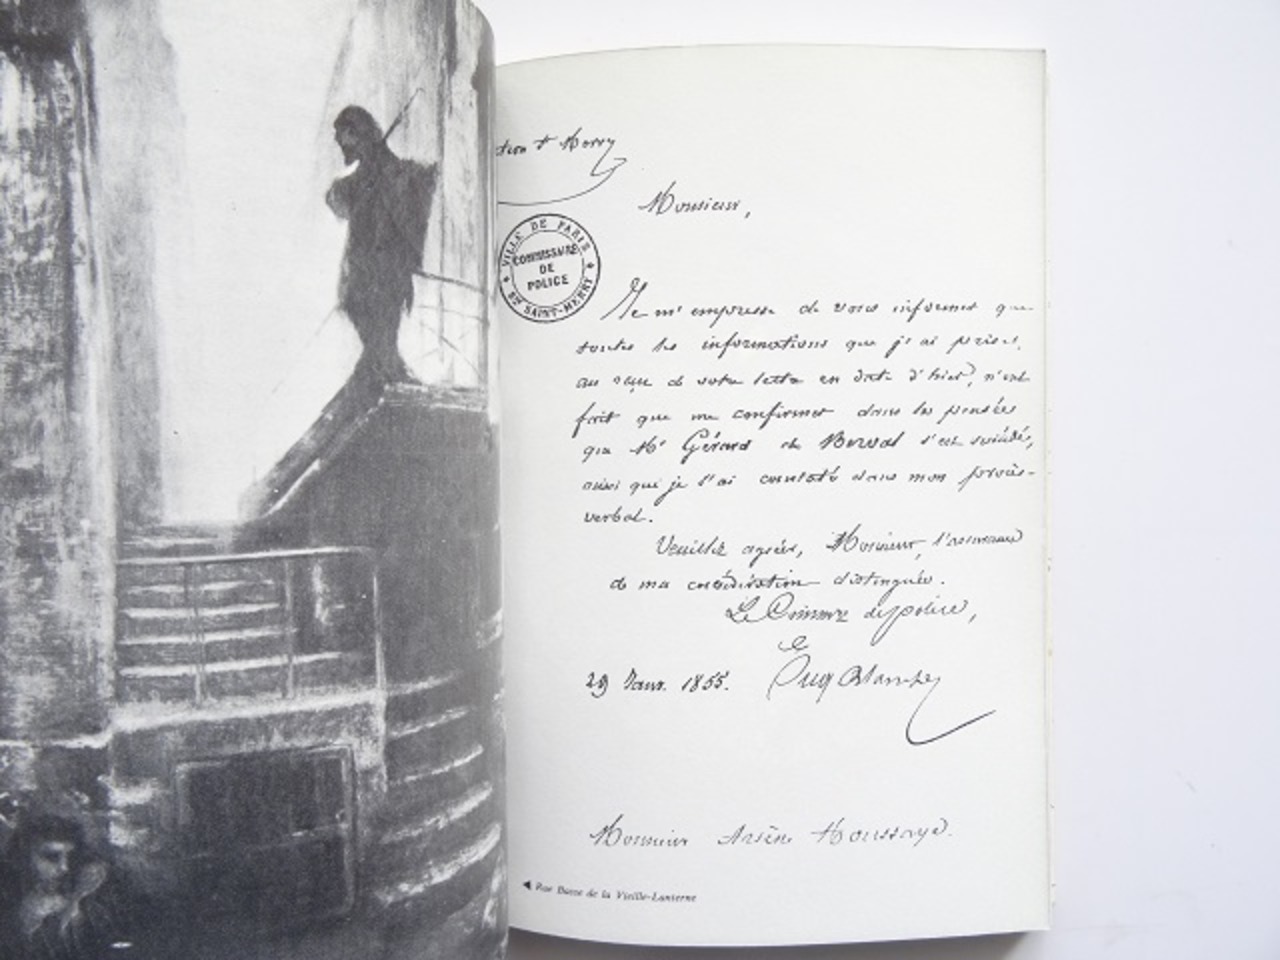 ction St Merry
Monsieur,
VILLE DE PARIS
COMMISSAIRE
DE
POLICE
SON SAINT-MERRY
Je m'empresse de vous informer que
toutes les informations que j'ai prises,
au reçu de votre lettre en date d'hier, n'ont
fait que me confirmer dans les pensées
que Mr Gérard de Nerval s'est suicidé,
ainsi que je l'ai constaté dans mon procès-
verbal.
Veuillez agréer, Monsieur, l'assurance
de ma considération distinguée.
Le Commre de police,
29 Janv. 1855.
Monsieur Arsène Houssaye.
◄ Rue Basse de la Vieille-Lanterne